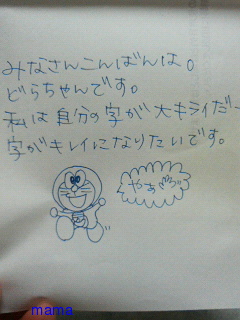 みなさんこんばんは。
どらちゃんです。
私は自分の字が大キライだー
字がキレイになりたいです。
mama